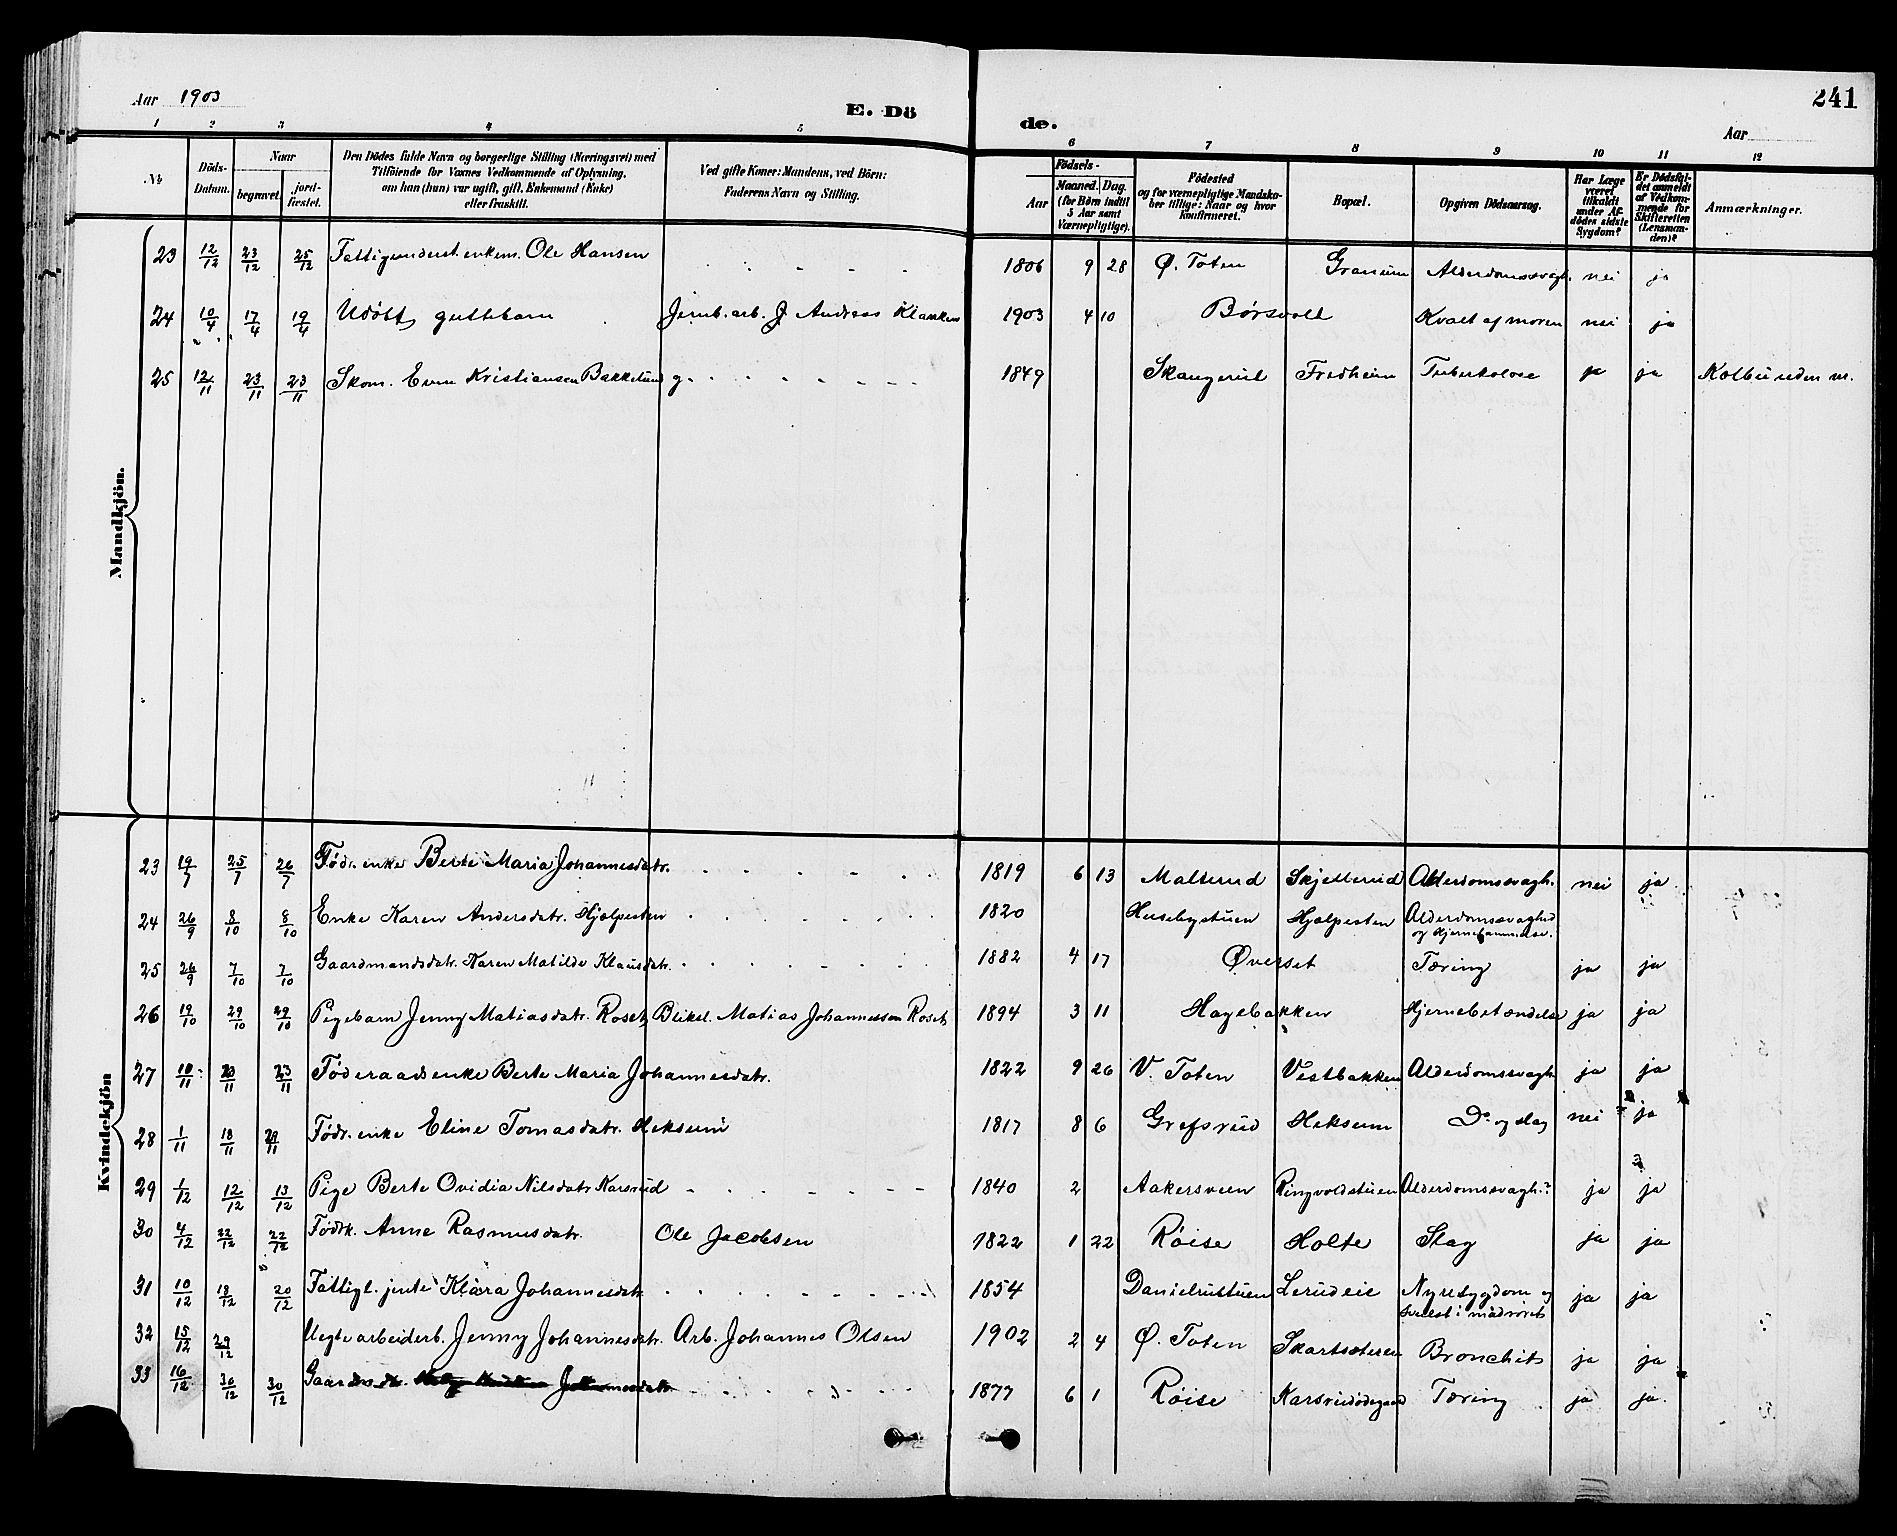 Aar 1903
E. Dö
de.
Aar
241
1 2 3 4 5 6 7 8 9 10 11 12
No.
Döds-Datum.
Naar
begravet.
jord-fæstet.
Den Dödes fulde Navn og borgerlige Stilling (Næringsvei) med
Tilföiende for Voxnes Vedkommende af Oplysning,
om han (hun) var ugift, gift, Enkemand (Enke)
eller fraskilt.
Ved gifte Koner: Mandens, ved Börn:
Faderens Navn og Stilling.
Födsels-
Aar
Maaned. Dag.
(for Börn indtil
5 Aar samt
Værnepligtige).
Födested
og for værnepligtige Mandska-
ber tillige: Naar og hvor
konfirmeret.
Bopæl.
Opgiven Dödsaarsag.
Har Læge
været
tilkaldt
under Af-
dödes sidste
Sygdom?
Er Dödsfal-
det anmeldt
af Vedkom-
mende for
Skifteretten
(Lensman-
den)?
Anmærkninger.
Mandkjön.
23 12/12 23/12 25/12 Fattigunderst. enkem. Ole Hansen 1806 9 28 Ø. Toten Granum Alderdomssvagh. nei ja
24 10/4 17/4 19/4 Udöbt guttebarn Jernb.arb. J. Andreas Klakken 1903 4 10 Børsvolt Kvalt af moren nei ja
25 12/11 23/11 23/11 Skom. Even Kristiansen Bakkelund g. 1849 Skangerud Fredheim Tuberkolose ja ja Kolbu uden nr.
Kvindekjön
23 19/7 25/7 26/7 Födr. enke Berte Maria Johannesdatr. 1819 6 13 Malterud Skjellerud Alderdomssvagh. nei ja
24 26/9 8/10 8/10 Enke Karen Andersdatr. Hjelpesten 1820 Husebystuen Hjelpesten Alderdomssvaghed
og Hjernebetændelse.
25 26/9 7/10 7/10 Gaardmandsdatr. Karen Matilde Klausdatr. 1882 4 17 Øverset Tæring ja ja
26 19/10 29/10 29/10 Pigebarn Jenny Matiasdatr. Roset Bliksl. Matias Johannessen Roset 1894 3 11 Hagebakken Hjernebetændelse ja ja
27 10/11 23/11 Föderaadsenke Berte Maria Johannesdatr. 1822 9 26 V. Toten Vestbakken Alderdomssvagh. ja ja
28 1/11 18/11 Födr. enke Eline Tomasdatr. Heksum 1817 8 6 Grefsrud Heksum Do. og slag nei ja
29 1/12 12/12 13/12 Pige Berte Ovidia Nilsdatr. Karsrud 1840 2 Aakersveen Ringvoldstuen Alderdomssvagh. ja ja
30 4/12 22/12 22/12 Födrk. Anne Rasmusdatr. Ole Jacobsen 1822 1 22 Røise Holte Slag ja ja
31 10/12 18/12 20/12 Fattigl. jente Klara Johannesdatr. 1854 Danielrustuen Lerudeie Nyresygdom og
i madrøret ja ja
32 15/12 29/12 Uegte arbeiderb. Jenny Johannesdatr. Arb. Johannes Olsen 1902 2 4 Ø. Toten Skartsæteren Bronchit ja ja
33 16/12 30/12 30/12 Gaardm.dr. Johannesdatr. 1877 6 1 Røise Karsrudødegaard Tæring ja ja.